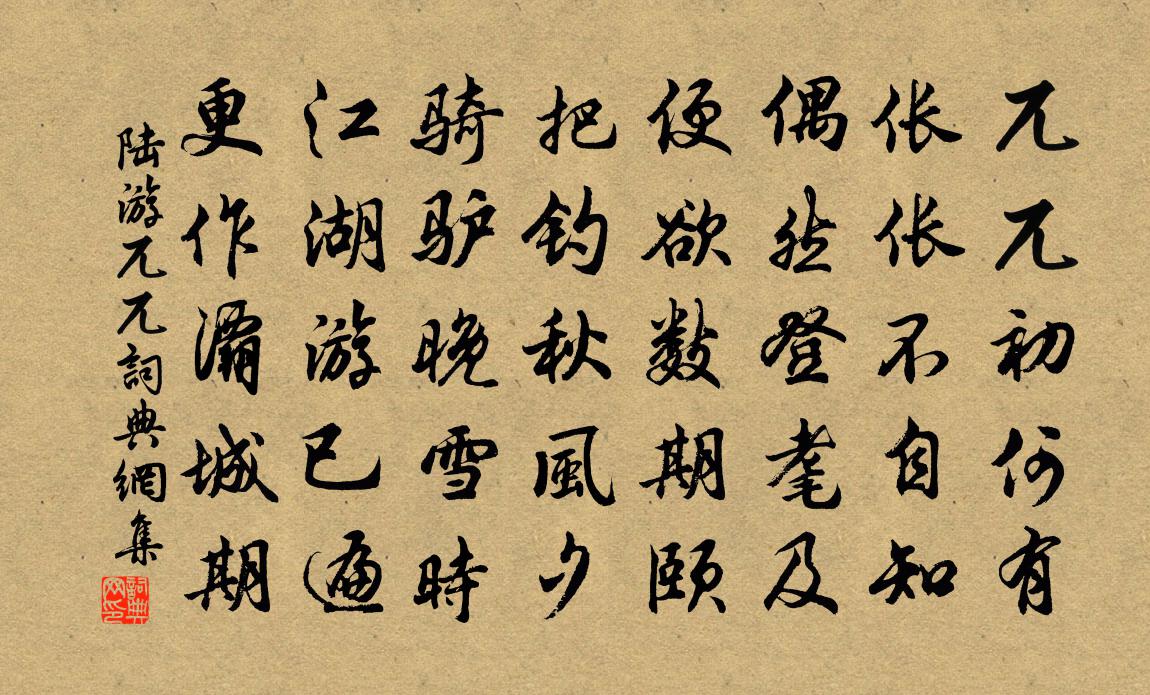 兀兀初何有
伥伥不自知
偶然登耄及
便欲数期颐
把钓秋風夕
骑驴晚雪時
江湖游已遍
更作灞城期
陆游兀兀詞典網集
詞典网印